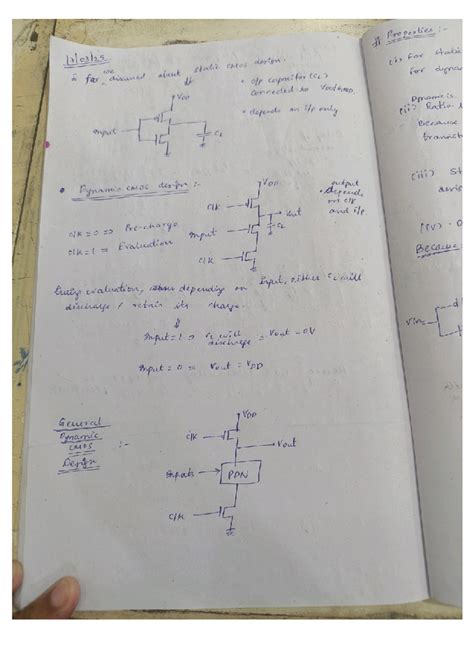 12/03/25
So far, we discussed about static CMOS design.
VDD
Input
CL
• o/p capacitor (CL)
connected to Vout & GND.
• depends on i/p only
• Dynamic CMOS design :-
clk = 0 ⇒ Pre-charge
clk = 1 ⇒ Evaluation
VDD
clk
Vout
Input
CL
clk
output
• depends
on clk
and i/p.
During evaluation, depending on Input, either CL will
discharge / retain its charge.
⇓
Input = 1 ⇒ CL will discharge ⇒ Vout = 0V
Input = 0 ⇒ Vout = VDD
General
Dynamic
CMOS
Design :-
VDD
clk
Vout
Inputs
PDN
clk
# Properties :-
(i) For static
for dynam
Dynamic
(ii) Ratio
Because
transist
(iii) St
devic
(iv)
Because
Vin